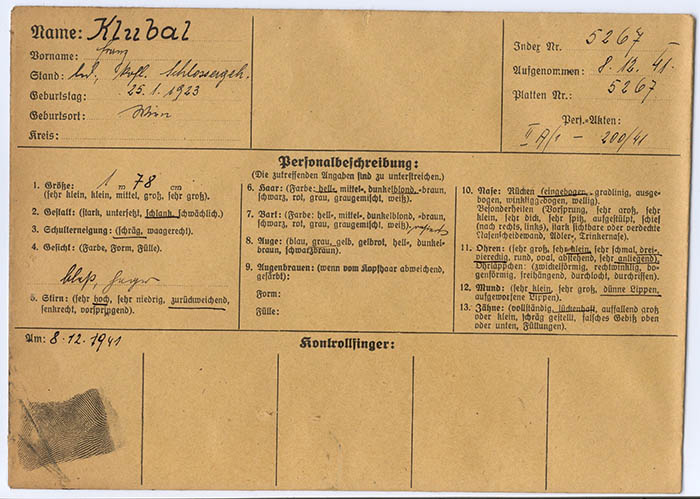 Name: Klubal
Vorname: Franz
Stand: led., Schlossergeh.
Geburtstag: 25.1.1923
Geburtsort: Wien
Kreis:
Index Nr. 5267
Aufgenommen: 8.12.41.
Platten Nr.: 5267
Pers.-Akten:
II A/1 – 200/41
Personalbeschreibung:
(Die zutreffenden Angaben sind zu unterstreichen.)
1. Größe: 1 m 78 cm
(sehr klein, klein, mittel, groß, sehr groß).
2. Gestalt: (stark, untersetzt, schlank, schwächlich.)
3. Schulterneigung: (schräg, waagerecht).
4. Gesicht: (Farbe, Form, Fülle).
blaß, hager
5. Stirn: (sehr hoch, sehr niedrig, zurückweichend,
senkrecht, vorspringend).
6. Haar: (Farbe: hell-, mittel-, dunkelblond, -braun,
schwarz, rot, grau, graugemischt, weiß).
7. Bart: (Farbe: hell-, mittel-, dunkelblond, -braun,
schwarz, rot, grau, graugemischt, weiß). rasiert
8. Auge: (blau, grau, gelb, gelbrot, hell-, dunkel-
braun, schwarzbraun).
9. Augenbrauen: (wenn vom Kopfhaar abweichend,
gefärbt):
Form:
Fülle:
10. Nase: Rücken (eingebogen, gradlinig, ausge-
bogen, winkliggebogen, wellig).
Besonderheiten (Vorsprung, sehr groß, sehr
klein, sehr dick, sehr spitz, aufgestülpt, schief
(nach rechts, links), stark sichtbare oder verdeckte
Nasenscheidewand, Adler-, Trinkernase).
11. Ohren: (sehr groß, sehr klein, sehr schmal, drei-,
viereckig, rund, oval, abstehend, sehr anliegend).
Ohrläppchen: (zwickelförmig, rechtwinklig, bo-
genförmig, freihängend, durchlocht, durchrissen).
12. Mund: (sehr klein, sehr groß, dünne Lippen,
aufgeworfene Lippen).
13. Zähne: (vollständig, lückenhaft, auffallend groß
oder klein, schräg gestellt, falsches Gebiß oben
oder unten, Füllungen).
Am: 8.12.1941
Kontrollfinger: